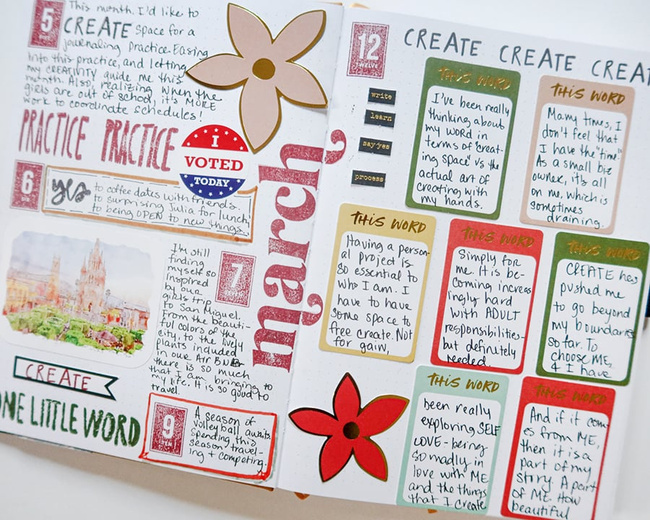 5
This month. I'd like to
CREATE space for a
journaling practice. Easing
into this practice, and letting
my CREATIVITY guide me this
month. Also, realizing when the
girls are out of school, it's MORE
work to coordinate schedules!
PRACTICE PRACTICE
I
VOTED
TODAY
6
SIX
yes
to coffee dates with friends.
to surprising Julia for lunch,
to being OPEN to new things.
march
I'm still
finding
myself so
inspired
by our
girls trip
to San Miguel.
From the beauti-
ful colors of the
city, to the lively
plants included
in our Air BNB
there is so much
that I am bringing to
my life. It is so good to
travel.
7
CREATE
ONE LITTLE WORD
9
A season of
volleyball awaits.
Spending this
season, travel-
ing + competing.
12
TWELVE
CREATE CREATE CREAT
write
learn
say yes
process
THIS WORD
I've been really
thinking about
my word in
terms of "creat-
ing space" vs the
actual art of
creating with
my hands.
THIS WORD
Many times, I
don't feel that
I have the "time."
As a small biz
owner, it's all
on me, which is
sometimes
draining.
THIS WORD
Having a person-
al project is
so essential to
who I am. I
have to have
some space to
free create. Not
for gain,
THIS WORD
Simply for
me. It is be-
coming increas
ingly hard
with ADULT
responsibilities-
but definitely
needed.
THIS WORD
CREATE has
pushed me
to go beyond
my boundaries
so far. To
choose ME,
& I have
THIS WORD
been really
exploring SELF
LOVE - being
so madly in
love with ME
and the things
that I create
THIS WORD
And if it com-
es from ME,
then it is a
part of my
story. A part
of ME. How
beautiful